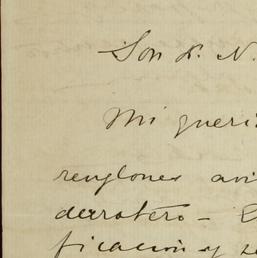 Son D. N.
Mi queri
renglones avi
derrotero –
ficación y